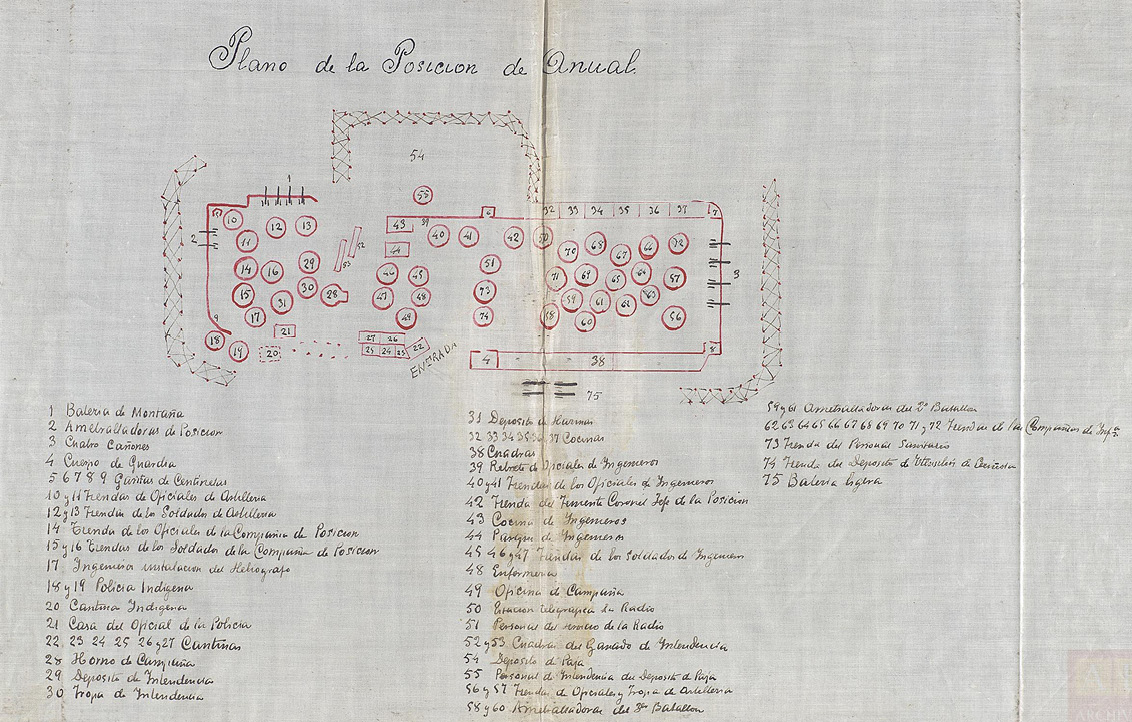 Plano de la Posicion de Anual.
54
55
1
10
12
13
43
39
6
32 33 34 35 36 37
7
2
11
52
40
41
42
50
68
66
72
70
67
53
44
14
16
29
51
3
46
45
71
69
65
64
57
15
31
30
28
47
48
73
59
61
62
63
17
9
49
74
58
60
56
18
21
19
20
27 26
25 24 23
22
ENTRADA
4
38
8
75
1 Bateria de Montaña
2 Ametralladoras de Posicion
3 Cuatro Cañones
4 Cuerpo de Guardia
5 6 7 8 9 Garitas de Centinelas
10 y 11 Tiendas de Oficiales de Artilleria
12 y 13 Tiendas de los Soldados de Artilleria
14 Tienda de los Oficiales de la Compañia de Posicion
15 y 16 Tiendas de los Soldados de la Compañia de Posicion
17 Ingenieros instalacion del Heliografo
18 y 19 Policia Indigena
20 Cantina Indigena
21 Casa del Oficial de la Policia
22 23 24 25 26 y 27 Cantinas
28 Horno de Campaña
29 Deposito de Intendencia
30 Tropa de Intendencia
31 Deposito de Harinas
32 33 34 35 36 37 Cocinas
38 Cuadras
39 Retrete de Oficiales de Ingenieros
40 y 41 Tiendas de los Oficiales de Ingenieros
42 Tienda del Teniente Coronel Jefe de la Posicion
43 Cocina de Ingenieros
44 Parque de Ingenieros
45 46 y 47 Tiendas de los Soldados de Ingenieros
48 Enfermeria
49 Oficina de Campaña
50 Estacion telegrafica la Radio
51 Personal del servicio de la Radio
52 y 53 Cuadras del Ganado de Intendencia
54 Deposito de Paja
55 Personal de Intendencia del Deposito de Paja
56 y 57 Tiendas de Oficiales y Tropa de Artilleria
58 y 60 Ametralladoras del 3er Batallon
59 y 61 Ametralladoras del 2º Batallon
62 63 64 65 66 67 68 69 70 71 y 72 Tiendas de las Compañias de Infª
73 Tienda del Personal Sanitario
74 Tienda del Deposito de Utensilios de
75 Bateria ligera